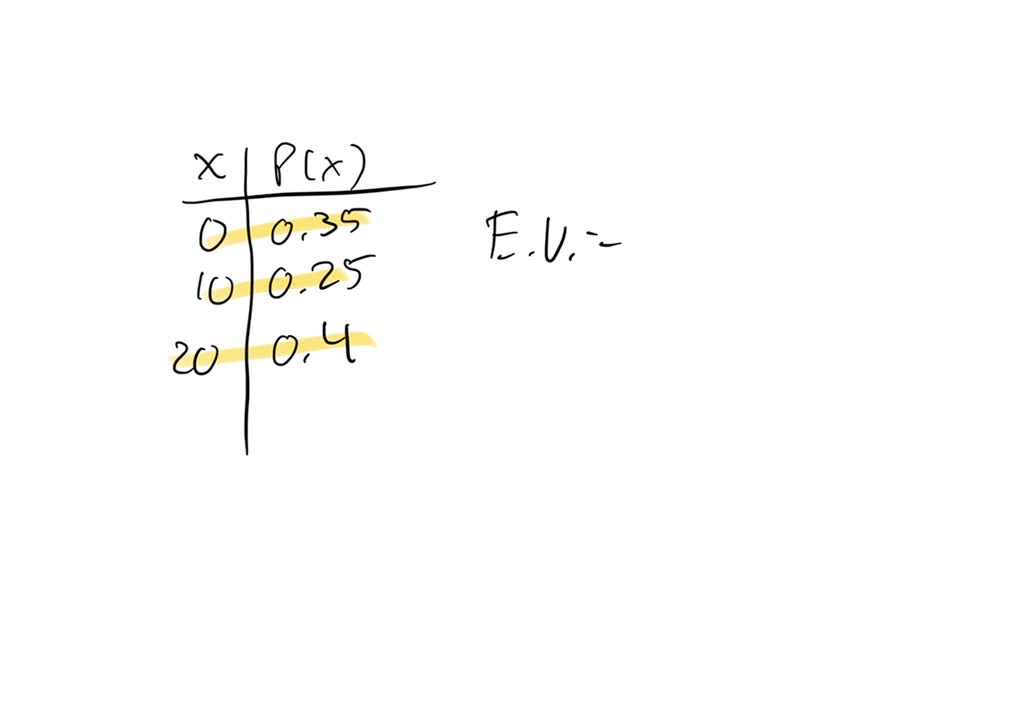 x P(x)
0 0.35
E.V.=
10 0.25
20 0.4